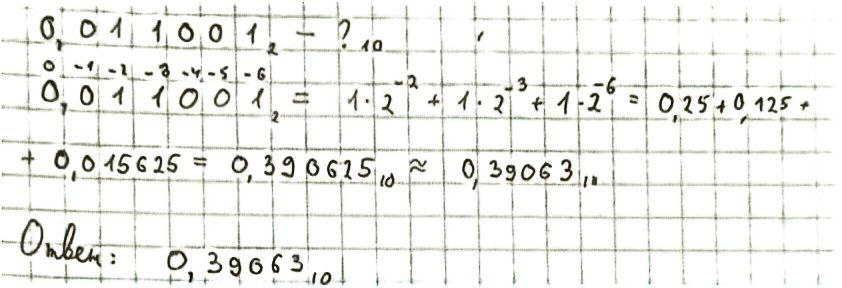 0,011001₂ - ?₁₀
0 -1 -2 -3 -4 -5 -6
0,011001₂ = 1·2⁻² + 1·2⁻³ + 1·2⁻⁶ = 0,25+0,125+
+ 0,015625 = 0,390625₁₀ ≈ 0,39063₁₀
Ответ: 0,39063₁₀